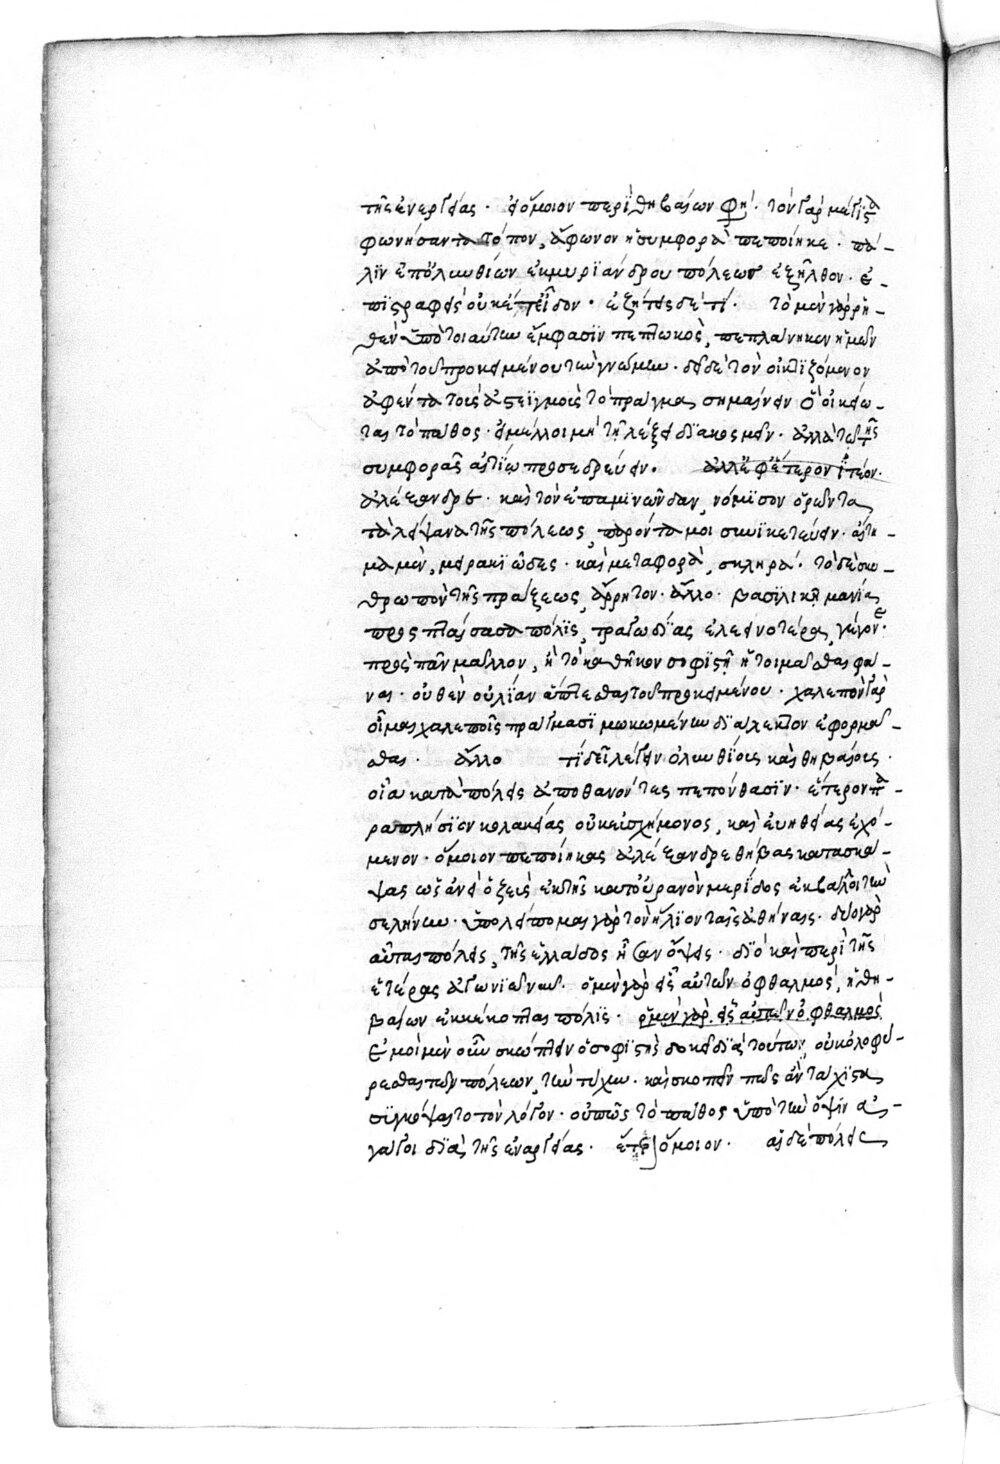 τῆς ἐνεργείας. ὅμοιον περὶ θηβαίων φη. τὸν γὰρ μέγιστα
φωνήσαντα τόπον, ἄφωνον ἡ συμφορὰ πεποίηκε. πά-
λιν ἐπ' ὀλυνθίων ἐκ μυριάνδρου πόλεως ἐξῆλθον. ἐ-
πιστραφεὶς οὐκέτ' εἶδον. ἐζήτεις δέ τί. τὸ μὲν γὰρ ῥη-
θὲν ὑπὸ τοιαύτην ἔμφασιν πεπτωκὸς, πεπλάνηκεν ἡμῶν
ἀπὸ τοῦ προκειμένου τὴν γνώμην. δεῖ δὲ τὸν οἰκτιζόμενον
ἀφέντα τοὺς ἀστεϊσμοὺς τὸ πρᾶγμα σημαίνειν ὃ οἰκειώ-
ται τὸ πάθος. εἰ μέλλοι μὴ τῇ λέξει διακοσμεῖν. ἀλλὰ τῆς
συμφορᾶς αἰτίῳ προσεδρεύειν. ἀλλ' ἐφ' ἕτερον ἰτέον.
ἀλέξανδρε. καὶ τὸν ἐπαμινώνδαν, νόμισον ὁρῶντα
τὰ λείψανα τῆς πόλεως, παρόντα μοι συνικετεύειν. αἴτη-
μα μὲν, μειρακιῶδες. καὶ μεταφορὰ, σκληρά. τὸ δὲ σκυ-
θρωπὸν τῆς πράξεως, ἄρρητον. ἄλλο. βασιλικῇ μανίᾳ
προσπταίσασα πόλις, τραγῳδίας ἐλεεινοτέρα γέγονε.
πρὸς πᾶν μᾶλλον, ἢ τὸ καθῆκον σοφιστῇ ἡτοιμάσθαι φαί-
νεται. οὐθὲν οὐ λίαν ἅπτεσθαι τοῦ προκειμένου. χαλεπὸν γὰρ
οἶμαι χαλεποῖς πράγμασι μωκωμένην διάλεκτον ἐφορμᾶ-
σθαι. ἄλλο τί δεῖ λέγειν ὀλυνθίους καὶ θηβαίους.
οἷα κατὰ πόλεις ἀποθανόντες πεπόνθασιν. ἕτερον πα-
ραπλήσιον κολακείας οὐκ εὐσχήμονος, καὶ εὐηθείας ἐχό-
μενον. ὅμοιον πεποίηκας ἀλέξανδρε θήβας κατασκά-
ψας ὡς ἂν εἰ ὁ ζεὺς ἐκ τῆς κατ' οὐρανὸν μερίδος ἐκβάλοι τὴν
σελήνην. ὑπολείπομαι γὰρ τὸν ἥλιον ταῖς ἀθήναις. δύο γὰρ
αὗται πόλεις, τῆς ἑλλάδος ἦσαν ὄψεις. διὸ καὶ περὶ τῆς
ἑτέρας ἀγωνιῶ νῦν. ὁ μὲν γὰρ εἷς αὐτῶν ὀφθαλμὸς, ἡ θη-
βαίων ἐκκέκοπται πόλις. ὁ μὲν γὰρ εἷς αὐτῶν ὀφθαλμὸς
ἐμοὶ μὲν οὖν σκώπτειν ὁ σοφιστὴς δοκεῖ διὰ τούτων, οὐκ ὀλοφύ-
ρεσθαι τῶν πόλεων, τὴν τύχην. καὶ σκοπεῖν πῶς ἂν τάχιστα
συγκόψαι τὸ τὸν λόγον. οὐ πῶς τὸ πάθος ὑπὸ τὴν ὄψιν ἀ-
γάγοι διὰ τῆς ἐναργείας. ἕτερον ὅμοιον. αἱ δὲ πόλεις